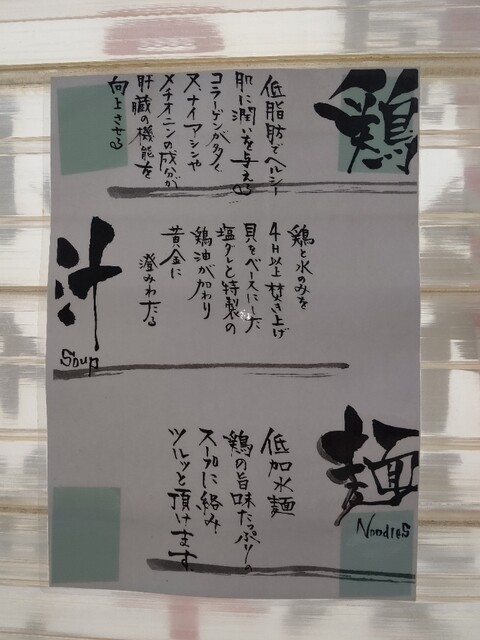 鶏
低脂肪でヘルシー
肌に潤いを与える
コラーゲンが多く
又、ナイアシンや
メチオニンの成分が
肝臓の機能を
向上させる
汁
Soup
鶏と水のみを
4H以上焚き上げ
貝をベースにした
塩ダレと特製の
鶏油が加わり
黄金に
澄みわたる
麺
Noodles
低加水麺
鶏の旨味たっぷりの
スープに絡み
ツルッと頂けます